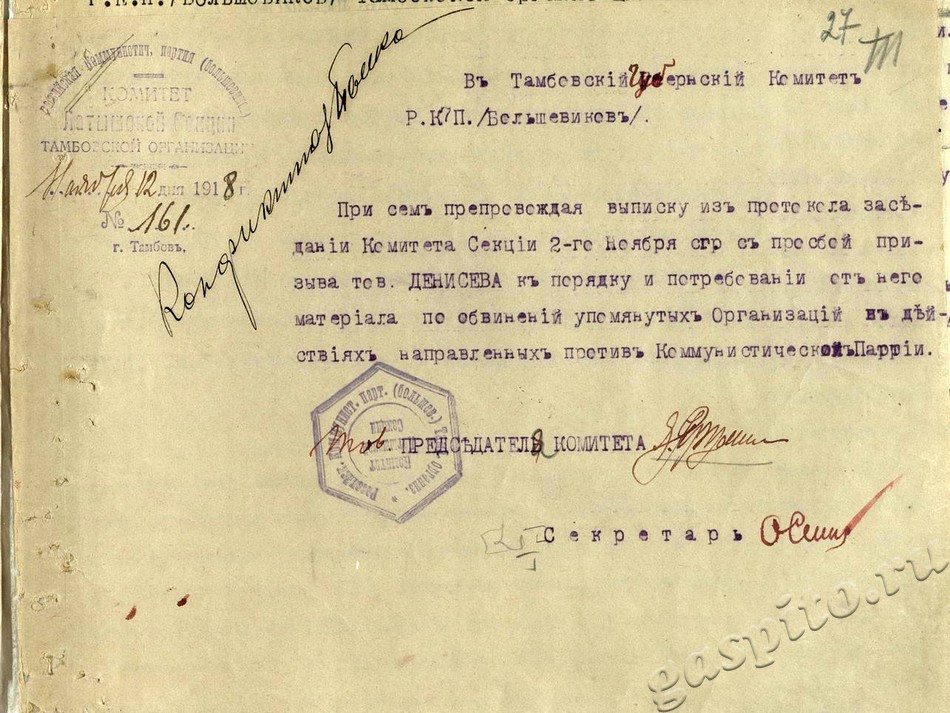 Р.К.П./БОЛЬШЕВИКОВ/
27
Россійская Коммунистич. партия (большевик.)
КОМИТЕТ
Латышской Секціи
ТАМБОВСКОЙ ОРГАНИЗАЦІИ
Ноября 12 дня 1918 г.
№ 161.
г. Тамбовъ.
Въ Тамбовскій Губернскій Комитетъ
Р.К.П./Большевиковъ/.
При семъ препровождая выписку изъ протокола засѣ-
даніи Комитета Секціи 2-го Ноября сгр съ просбой при-
зыва тов. ДЕНИСЕВА къ порядку и потребованіи отъ него
матеріала по обвиненій упомянутыхъ Организацій въ дѣй-
ствіяхъ направленныхъ противъ Коммунистической Партіи.
тов. ПРЕДСѢДАТЕЛЯ КОМИТЕТА
Секретарь
gaspito.ru